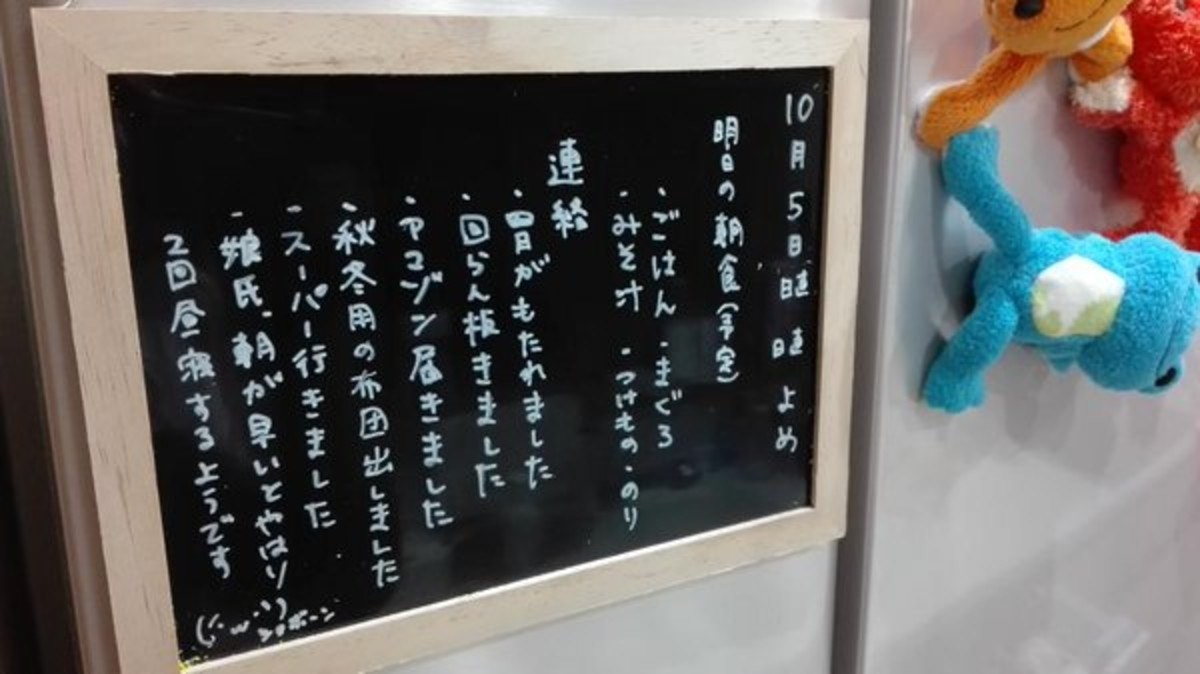 10月5日 日直 よめ
明日の朝食(予定)
・ごはん ・まぐろ
・みそ汁 ・つけもの ・のり
連絡
・胃がもたれました
・回らん板きました
・アマゾン届きました
・秋冬用の布団出しました
・スーパー行きました
・娘氏、朝が早いとやはり
2回昼寝するようです
ショボーン